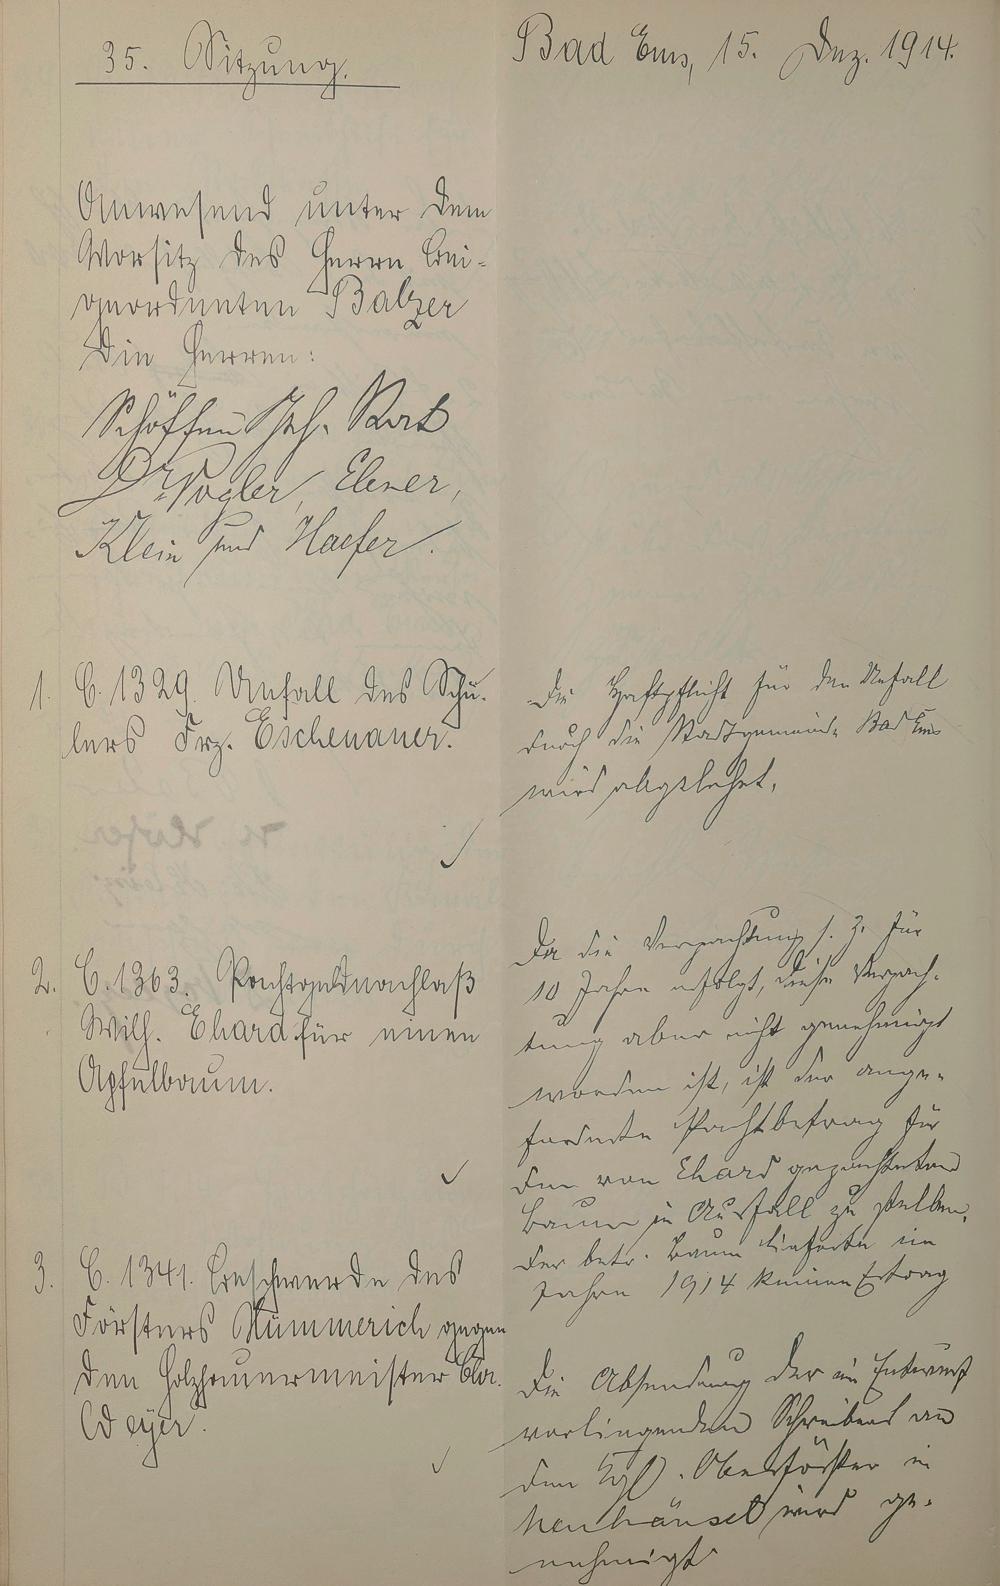 35. Sitzung.
Bad Ems, 15. Dez. 1914.
Anwesend unter dem
Vorsitz des Herrn Bei-
geordneten Balzer
die Herren:
Schöffen Jph. Rat
Dr Vogler, Ebner,
Klein und Haefer.
1. C. 1329. Unfall des Schü-
lers Frz. Eschenauer.
Die Haftpflicht für den Unfall
durch die Stadtgemeinde Bad Ems
wird abgelehnt.
2. C. 1363. Pachtgeldnachlaß
Wilh. Ehard für einen
Apfelbaum.
Da die Verpachtung s. Z. für
10 Jahre erfolgt, diese Verpach-
tung aber nicht genehmigt
worden ist, ist der ange-
forderte Pachtbetrag für
den von Ehard gepachteten
Baum in Ausfall zu stellen.
Der betr. Baum lieferte im
Jahre 1914 keinen Ertrag
3. C. 1341. Beschwerde des
Försters Kümmerich gegen
den Holzhauermeister
Weyer.
Die Absendung des im Entwurf
vorliegenden Schreibens an
den Kgl. Oberförster in
Neuhäusel wird ge-
nehmigt